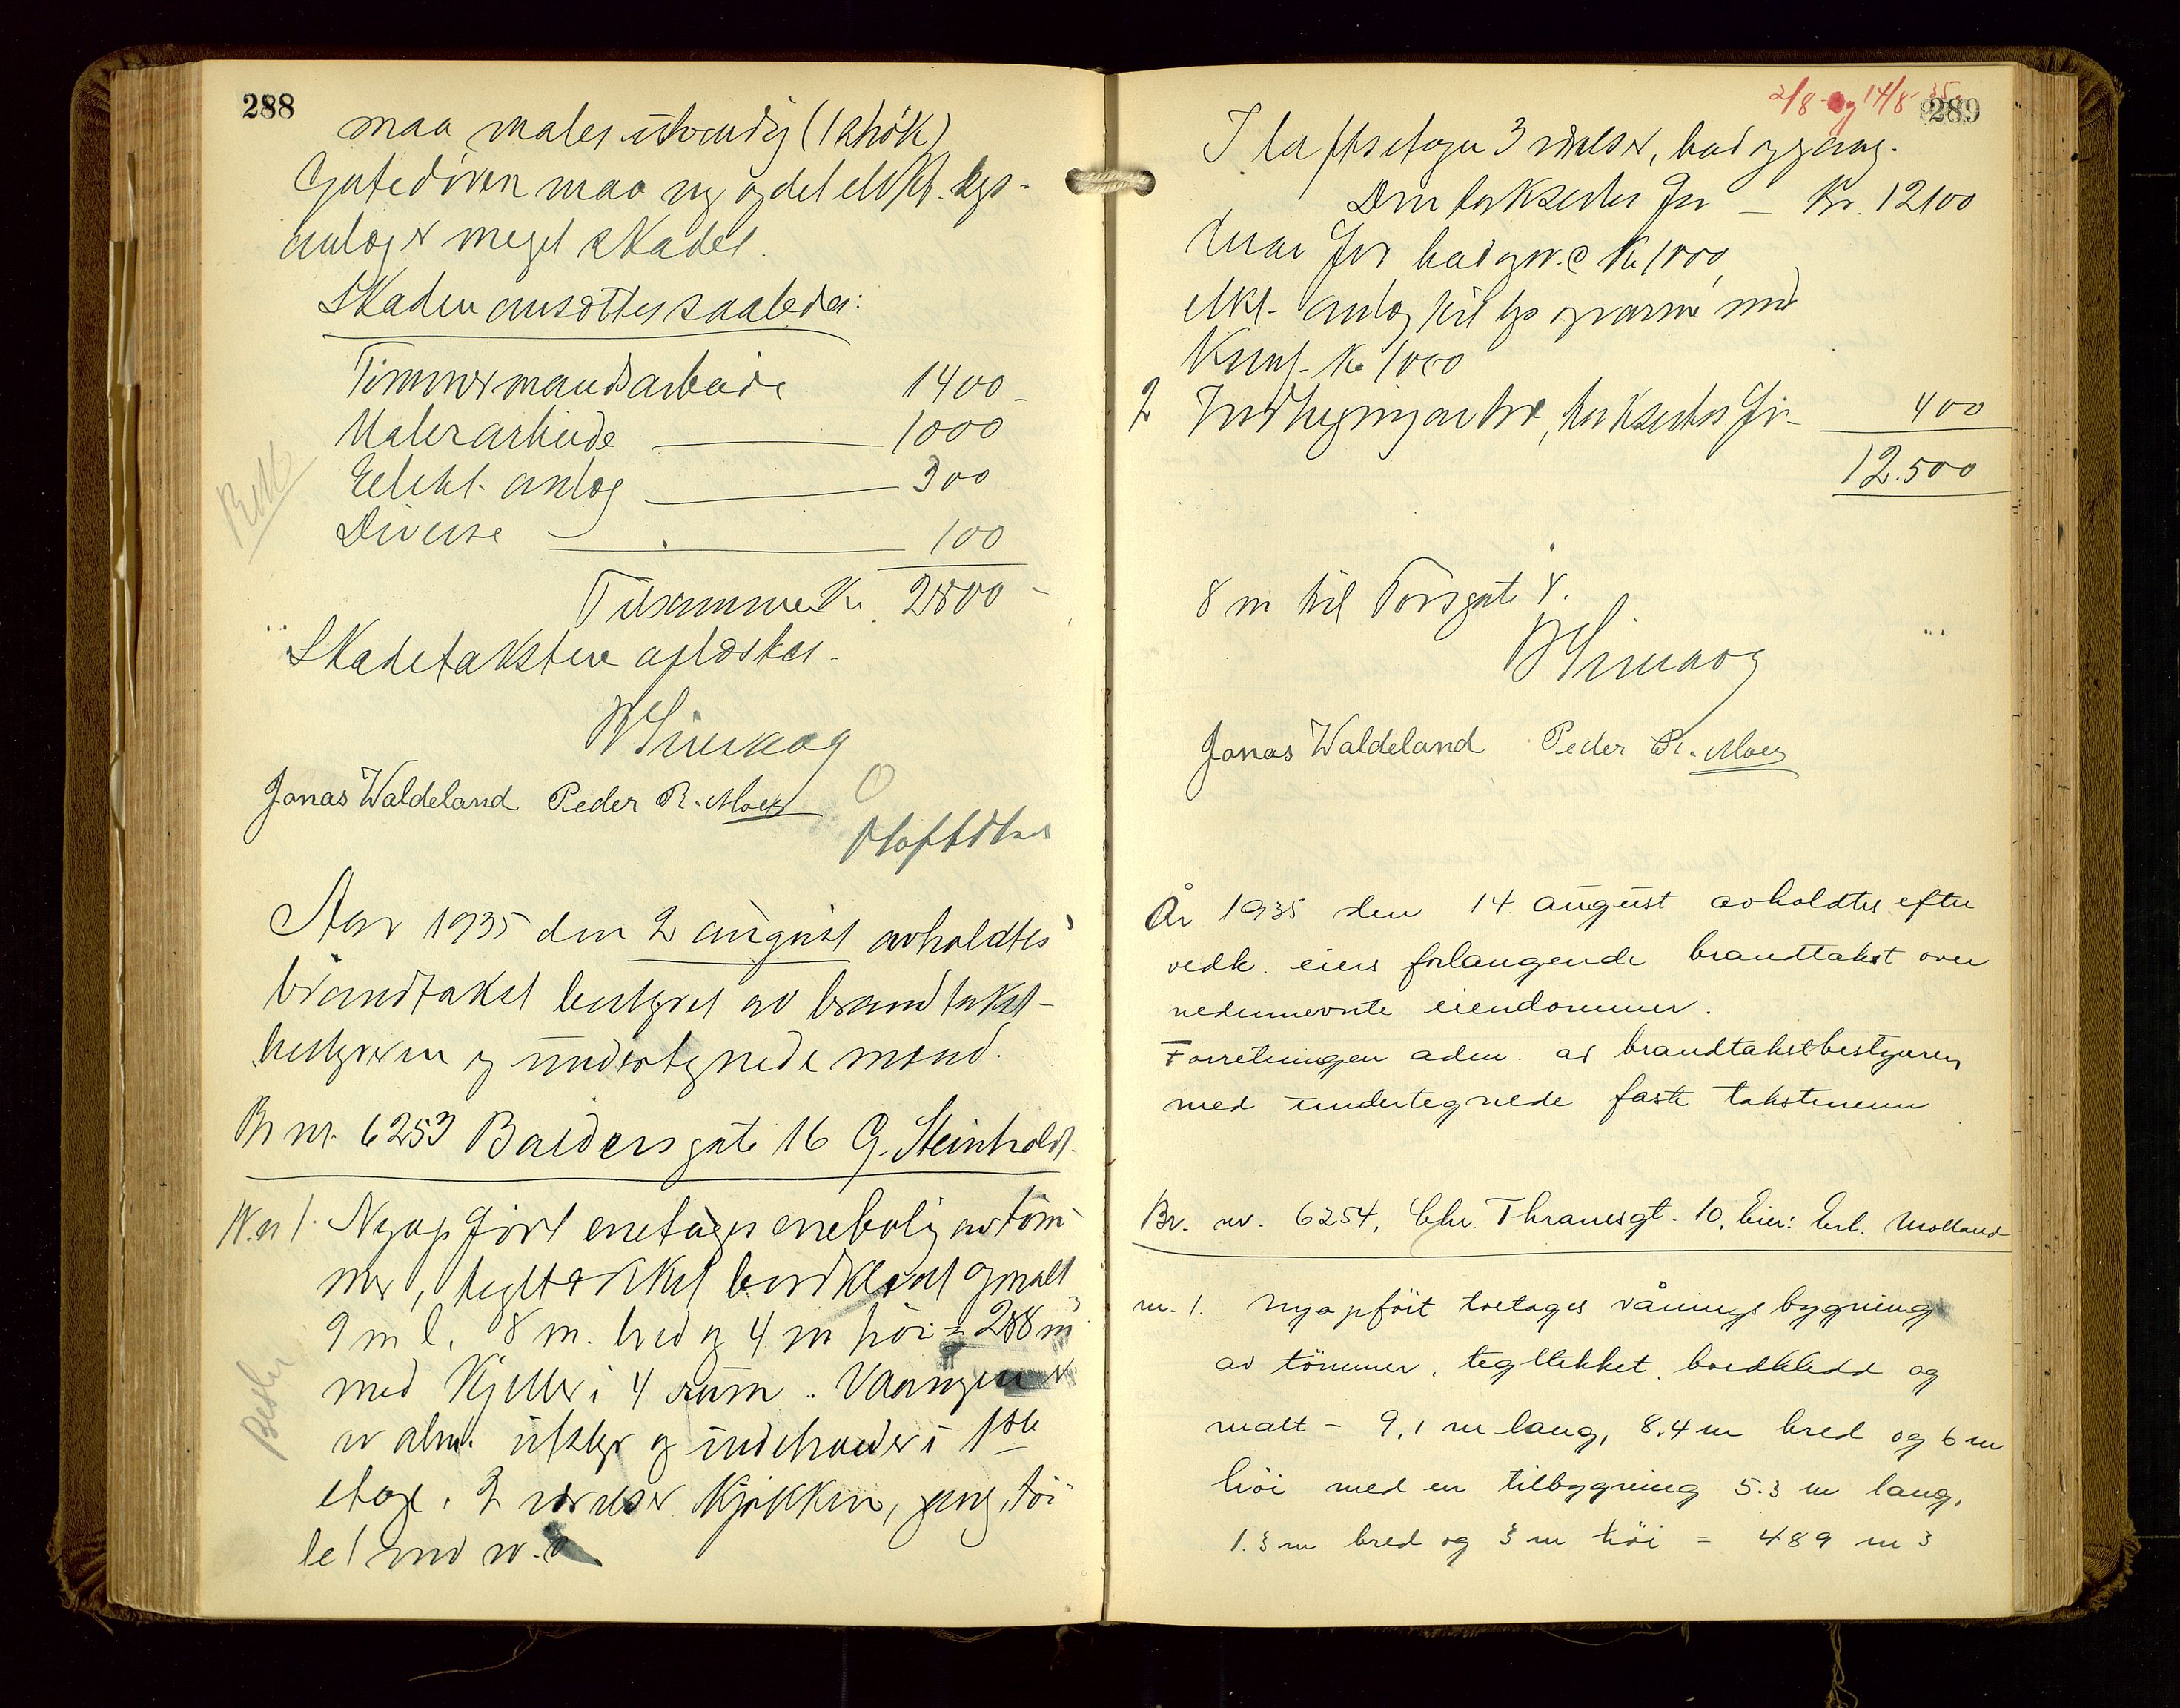 288
maa males utvendig (1 strök)
Gatedören maa ny og det elekt. lys-
anlæg er meget skadet.
Skaden ansættes saaledes:
Timmermandsarbeide 1400-
Malerarbeide 1000
Elekt. anlæg 300
Diverse 100
Tilsammen Kr. 2800-
Skadetaksten avløstes.
Jonas Waldeland Peder R. Moey
Aar 1935 den 2 august avholdtes
brandtakst bestyret av brandtakst-
bestyreren og undertegnede mænd.
Br nr. 6253 Baldersgate 16 G. Steinholdt.
Nr. 1. Nyopfört enetages enebolig av töm-
mer, teglt ækket bordklædt og malt
9 m l. 8 m. bred og 4 m höi = 288 m³
med Kjeller i 4 rum. Vaaningen er
av alm. utstyr og indeholder i 1ste
etage. 2 værelser Kjökken, gang, toi-
let med w.c
2/8 og 14/8-35.
289
I loftsetagen 3 værelser, bad og gang.
Den taksertes for — Kr. 12100
Derav for bad og w.c Kr. 1000,
elkt. anlæg til lys og varme med
Kr. 1000
2 Indhegning av træ, taksertes for - 400
12.500
8 m til Torsgate 4.
Jonas Waldeland Peder R. Moey
År 1935 den 14. august avholdtes efter
vedk. eiers forlangende brandtakst over
nedennevnte eiendommer.
Forretningen adm. av brandtakstbestyreren
med undertegnede faste takstmenn
Br. nr. 6254, Chr. Thranesgt. 10, Eier: Erl. Molland
nr. 1. Nyopföit toetages våningsbygning
av tömmer, tegltekket, bordkledd og
malt - 9,1 m lang, 8.4 m bred og 6 m
höi med en tilbygning 5.3 m lang,
1.3 m bred og 3 m höi = 489 m3